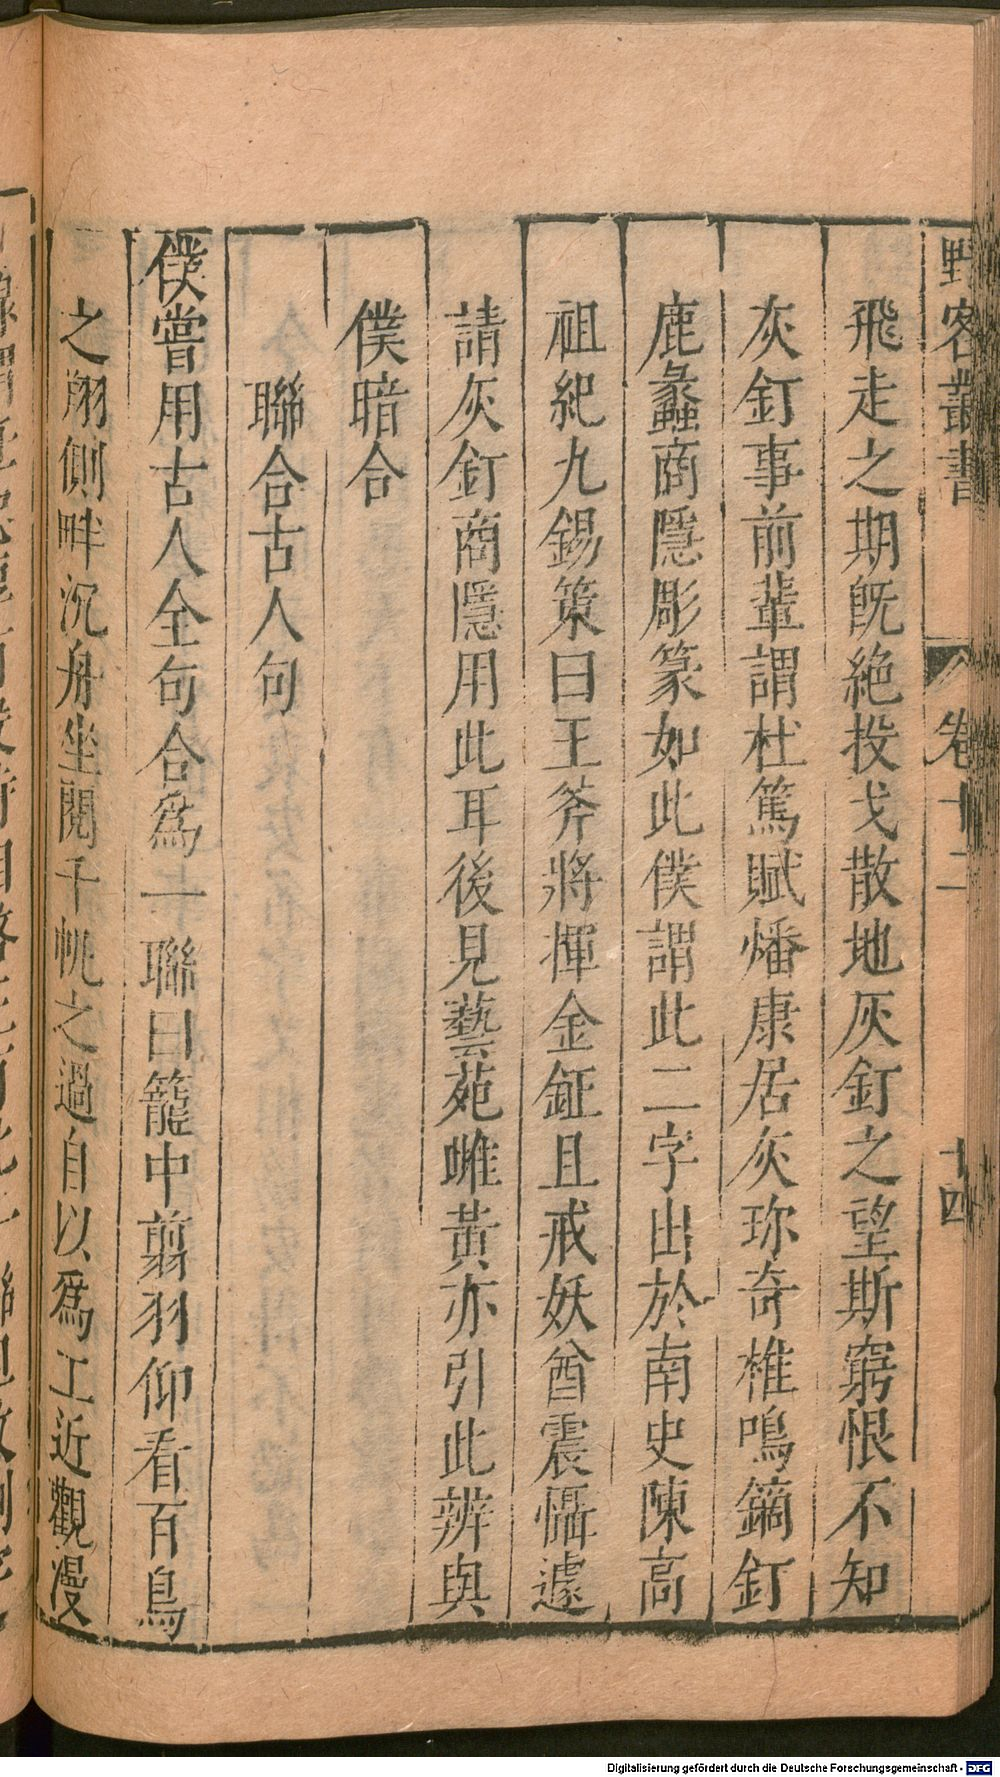 野客叢書 卷十二 十四
飛走之期旣絶投戈散地灰釘之望斯窮恨不知
灰釘事前輩謂杜篤賦燔康居灰珎奇椎鳴鏑釘
鹿蠡商隱彫篆如此僕謂此二字出於南史陳高
祖紀九錫策曰王斧將揮金鉦且戒妖酋震慴遽
請灰釘商隱用此耳後見藝苑雌黃亦引此辨與
僕暗合
聯合古人句
僕嘗用古人全句合爲一聯曰籠中翦羽仰看百鳥
之翔側畔沉舟坐閱千帆之過自以爲工近觀漫
Digitalisierung gefördert durch die Deutsche Forschungsgemeinschaft - DFG